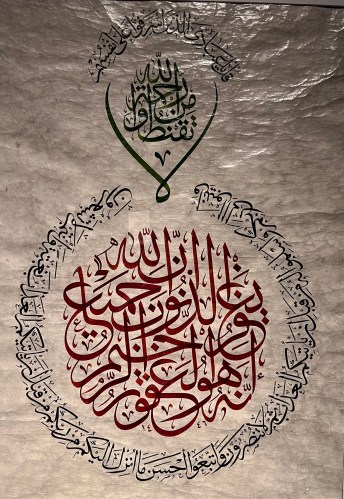 قل يا عبادي الذين أسرفوا على أنفسهم
لا تقنطوا من رحمة الله
إن الله يغفر الذنوب جميعا إنه هو الغفور الرحيم
وأنيبوا إلى ربكم وأسلموا له من قبل أن يأتيكم العذاب ثم لا تنصرون واتبعوا أحسن ما أنزل إليكم من ربكم من قبل أن يأتيكم العذاب بغتة وأنتم لا تشعرون